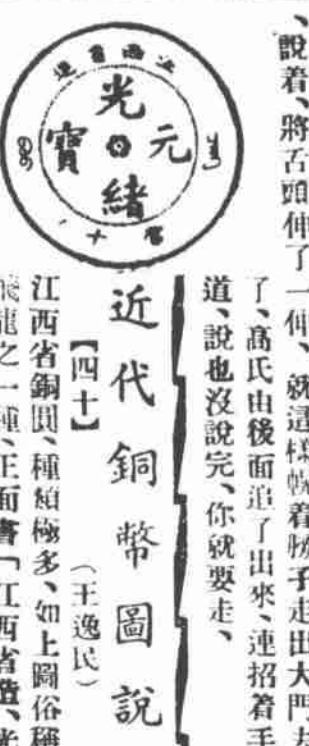 、說着、將舌頭伸了一伸、就這樣
着脖子走出大門去
了、高氏由後面追了出來、連招着手
道、說也沒說完、你就要走、
江西省造
光緒元寶
當十
近代銅幣圖說
【四十】
（王逸民）
江西省銅圓、種類極多、如上圖俗稱
飛龍之一種、正面書「江西省造、光